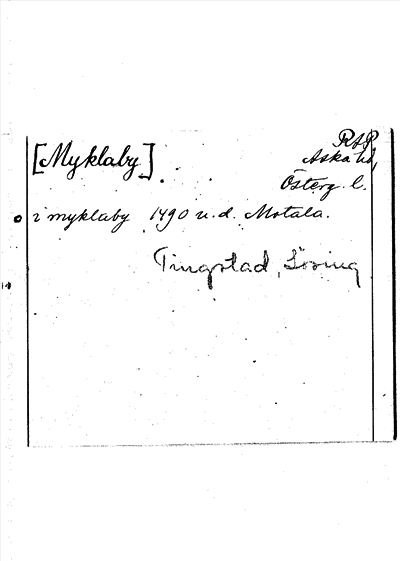 RAP
[Myklaby]
Aska hd,
Österg. l.
i myklaby 1490 u. d. Motala.
Tingstad, Lösing